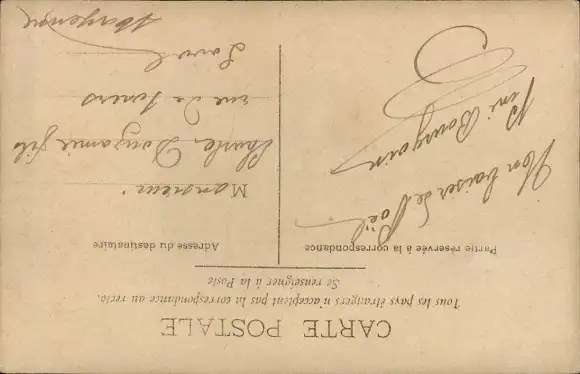 CARTE POSTALE
Tous les pays étrangers n'acceptent pas la correspondance au recto.
Se renseigner à la Poste
Partie réservée à la correspondance
Mon baiser de Noël
René Bourgoin
Adresse du destinataire
Monsieur
Charles fils
rue de
Laval
Mayenne